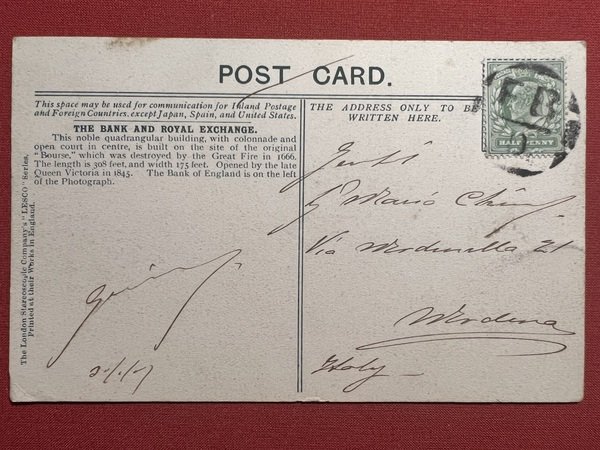 POST CARD.
This space may be used for communication for Inland Postage
and Foreign Countries, except Japan, Spain, and United States.
THE BANK AND ROYAL EXCHANGE.
This noble quadrangular building, with colonnade and
open court in centre, is built on the site of the original
"Bourse," which was destroyed by the Great Fire in 1666.
The length is 308 feet, and width 175 feet. Opened by the late
Queen Victoria in 1845. The Bank of England is on the left
of the Photograph.
The London Stereoscopic Company's "LESCO" Series.
Printed at their Works in England.
THE ADDRESS ONLY TO BE
WRITTEN HERE.
HALFPENNY
Mario
Via 21
Modena
Italy